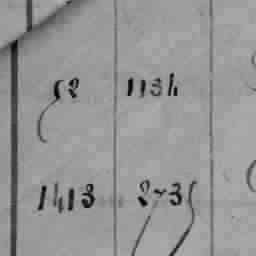 52 1134
1413 2735